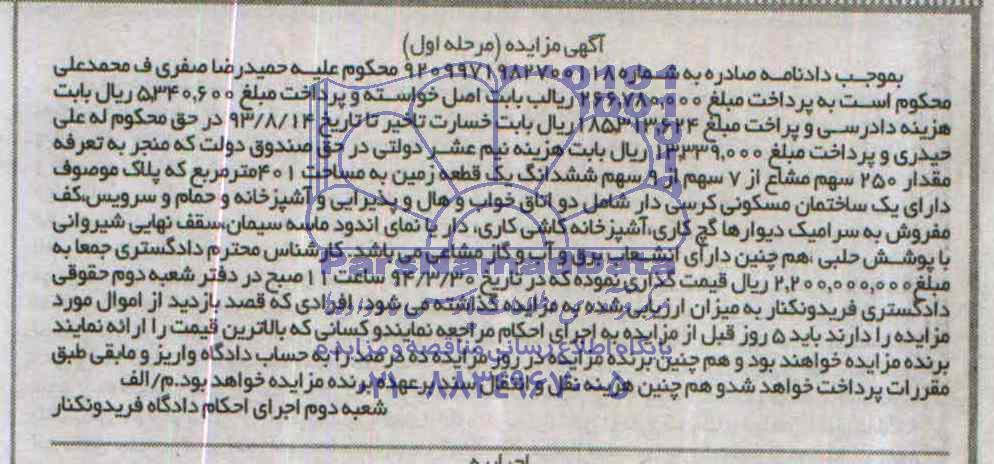 آگهی مزایده (مرحله اول)
بموجب دادنامه صادره به شماره ۹۲۰۹۹۷۱۹۸۲۷۰۰۱۱۸ محکوم علیه حمیدرضا صفری ف محمدعلی
محکوم است به پرداخت مبلغ ۲۶۶,۷۸۰,۰۰۰ ریالب بابت اصل خواسته و پرداخت مبلغ ۵,۳۴۰,۶۰۰ ریال بابت
هزینه دادرسی و پراخت مبلغ ۱۸۵۳۱۳۶۲۴ ریال بابت خسارت تأخیر تا تاریخ ۹۳/۸/۱۴ در حق محکوم له علی
حیدری و پرداخت مبلغ ۱۳,۳۳۹,۰۰۰ ریال بابت هزینه نیم عشر دولتی در حق صندوق دولت که منجر به تعرفه
مقدار ۲۵۰ سهم مشاع از ۷ سهم از ۹ سهم ششدانگ یک قطعه زمین به مساحت ۴۰۱ مترمربع که پلاک موصوف
دارای یک ساختمان مسکونی کرسی دار شامل دو اتاق خواب و هال و پذیرایی و آشپزخانه و حمام و سرویس،کف
مفروش به سرامیک دیوارها گچ کاری،آشپزخانه کاشی کاری، دار با نمای اندود ماسه سیمان،سقف نهایی شیروانی
با پوشش حلبی ،هم چنین دارای انشعاب برق و آب و گاز مشاعی می باشد.کارشناس محترم دادگستری جمعا به
مبلغ ۲,۲۰۰,۰۰۰,۰۰۰ ریال قیمت گذاری نموده که در تاریخ ۹۴/۳/۳۰ ساعت ۱۱ صبح در دفتر شعبه دوم حقوقی
دادگستری فریدونکنار به میزان ارزیابی شده به مزایده گذاشته می شود، افرادی که قصد بازدید از اموال مورد
مزایده را دارند باید ۵ روز قبل از مزایده به اجرای احکام مراجعه نمایندو کسانی که بالاترین قیمت را ارائه نمایند
برنده مزایده خواهند بود و هم چنین برنده مزایده در روز مزایده ده درصد را به حساب دادگاه واریز و مابقی طبق
مقررات پرداخت خواهد شدو هم چنین هزینه نقل و انتقال سند بر عهده برنده مزایده خواهد بود.م/الف
شعبه دوم اجرای احکام دادگاه فریدونکنار
ParsNamadData
پایگاه اطلاع رسانی مناقصه و مزایده